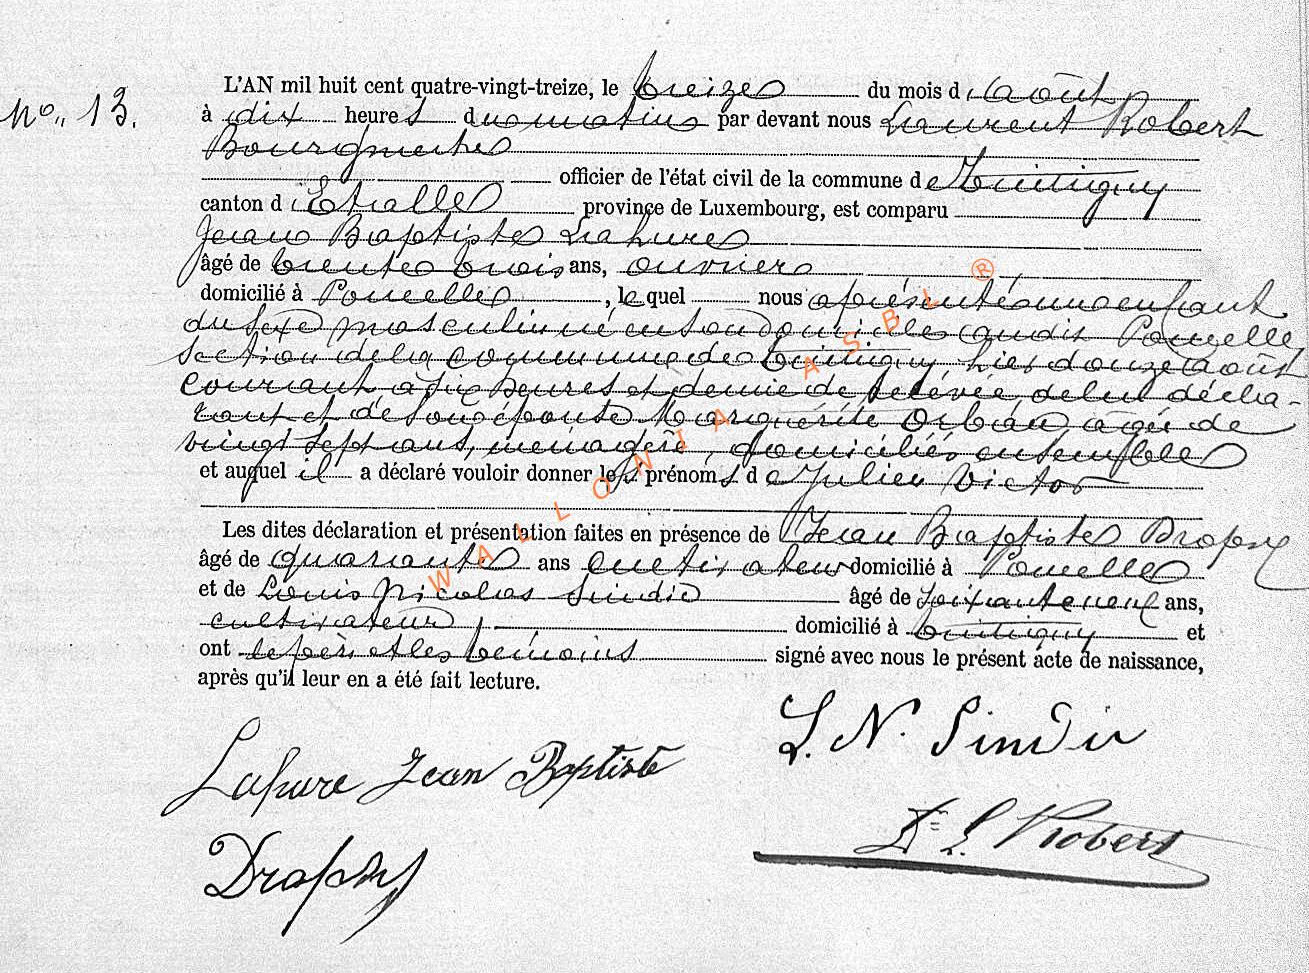 L'AN mil huit cent quatre-vingt-treize, le treize du mois d'août
N° 13.
à dix heures du matin par devant nous Laurent Robert
Bourgmestre
officier de l'état civil de la commune de Tintigny
canton d'Etalle province de Luxembourg, est comparu
Jean Baptiste Lahure
âgé de trente trois ans, ouvrier
domicilié à Poncelle, lequel nous a présenté un enfant
du sexe masculin né en son domicile audit Poncelle,
section de la commune de Tintigny, hier douze août
courant, à six heures et demie de relevée, de lui décla-
rant et de son épouse Marguérite Orban, agée de
vingt sept ans, ménagère, domiciliés ensemble
et auquel il a déclaré vouloir donner les prénoms de Julien Victor
Les dites déclaration et présentation faites en présence de Jean Baptiste Dropsy
âgé de quarante ans cultivateur domicilié à Poncelle
et de Louis Nicolas Sindic âgé de soixante neuf ans,
cultivateur, domicilié à Tintigny et
ont le père et les témoins signé avec nous le présent acte de naissance,
après qu'il leur en a été fait lecture.
L. N. Sindic
Lahure Jean Baptiste
L. Robert
Dropsy
WALLONIA ASBL ®